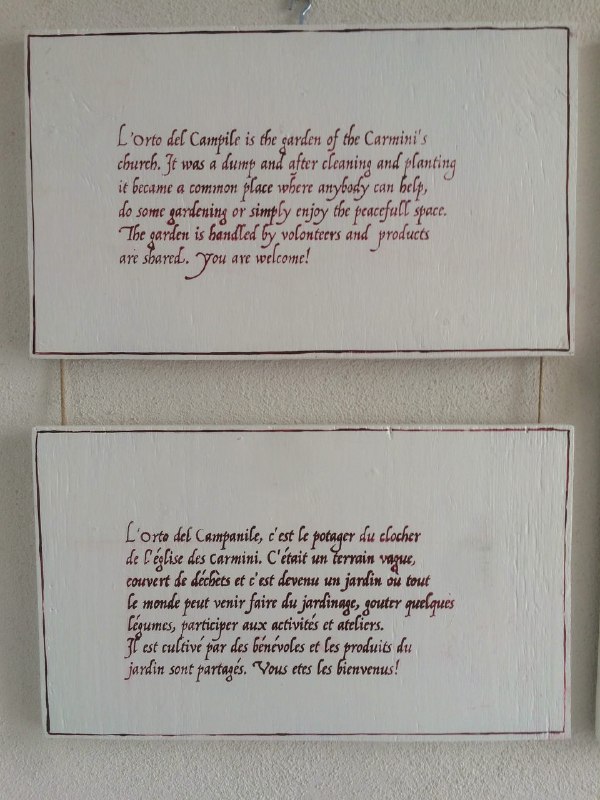 L'Orto del Campile is the garden of the Carmini's
church. It was a dump and after cleaning and planting
it became a common place where anybody can help,
do some gardening or simply enjoy the peacefull space.
The garden is handled by volonteers and products
are shared. You are welcome!
L'Orto del Campanile, c'est le potager du clocher
de l'église des Carmini. C'était un terrain vague,
couvert de déchèts et c'est devenu un jardin où tout
le monde peut venir faire du jardinage, gouter quelques
légumes, participer aux activités et ateliers.
Il est cultivé par des bénévoles et les produits du
jardin sont partagés. Vous etes les bienvenus!